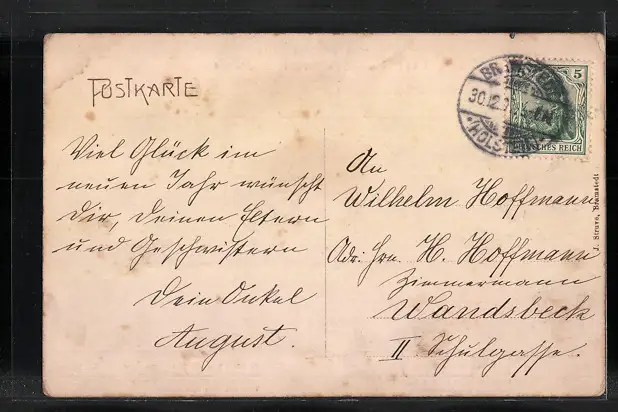 POSTKARTE
Viel Glück im
neuen Jahr wünscht
Dir, Deinen Eltern
und Geschwistern
Dein Onkel
August.
An
Wilhelm Hoffmann
Adr. Hrn. H. Hoffmann
Zimmermann
Wandsbeck
II Schulgasse.
5
DEUTSCHES REICH
30.12.
J. Struve, Bramstedt